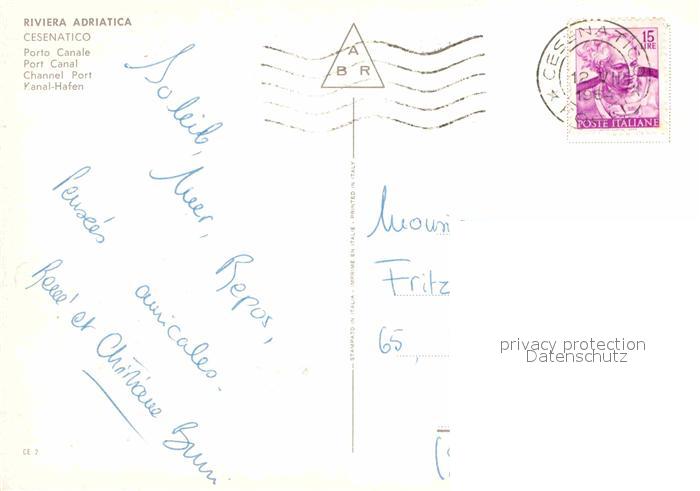 RIVIERA ADRIATICA
CESENATICO
Porto Canale
Port Canal
Channel Port
Kanal-Hafen
A
B R
CESENATICO
12
15
LIRE
POSTE ITALIANE
Soleil, Mer, Repos,
Pensées amicales.
René et Christiane
STAMPATO IN ITALIA - IMPRIME EN ITALIE - PRINTED IN ITALY
Fritz
65,
privacy protection
Datenschutz
CE 2